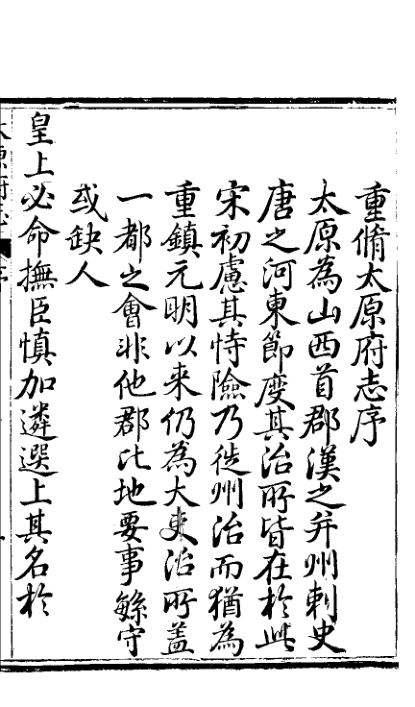 重脩太原府志序
太原為山西首郡漢之并州刺史
唐之河東節度其治所皆在於此
宋初慮其恃險乃徙州治而猶為
重鎮元明以来仍為大吏治所盖
一都之會非他郡比地要事繇守
或缺人
皇上必命撫臣慎加遴選上其名於